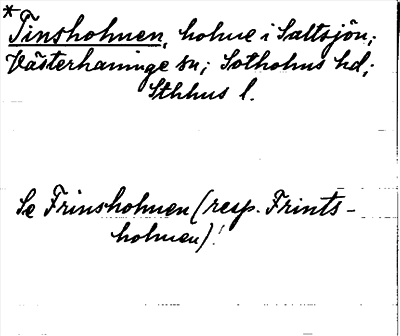 *
Tinsholmen, holme i Saltsjön;
Västerhaninge sn; Sotholms hd;
Sthlms l.
Se Frinsholmen (resp. Frints-
holmen)!